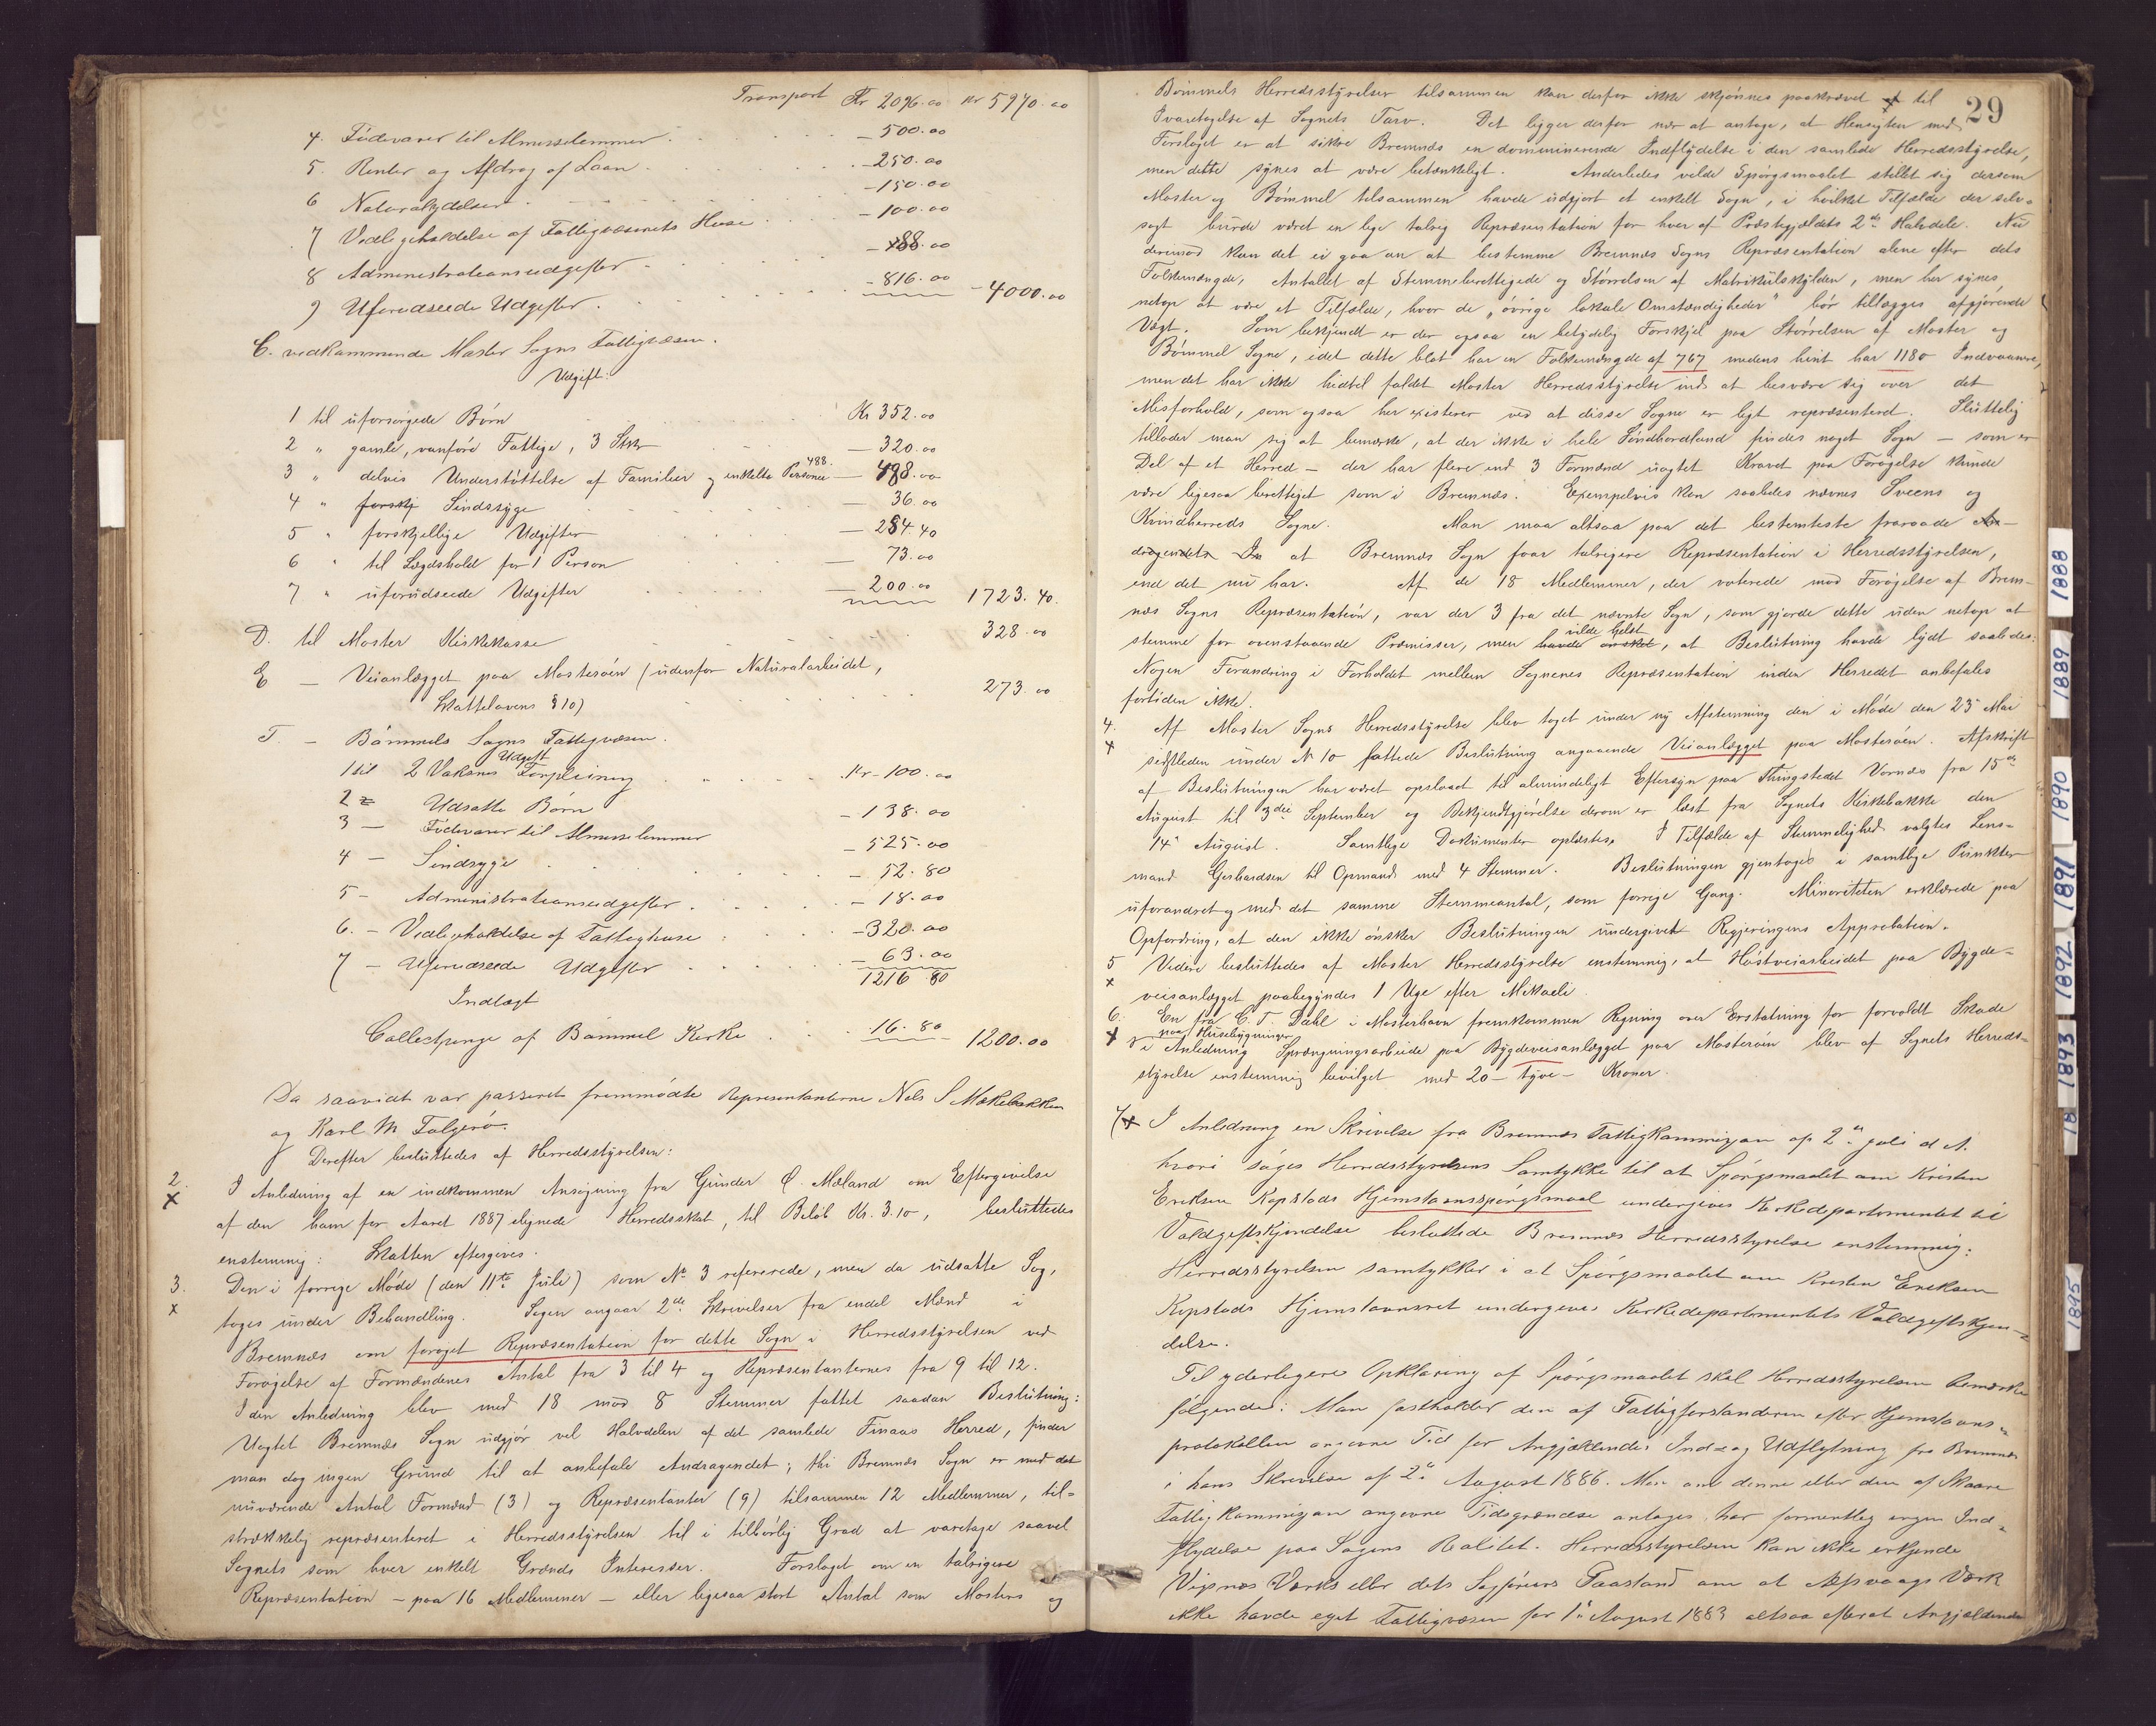 Transport Kr 2096.00 Kr 5970.00
4. Födevarer til Almisselemmer - 500.00
5. Renter og Afdrag af Laan - 250.00
6 Naturalydelser - 150.00
7 Vedligeholdelse af Fattigvæsenets Huse - 100.00
8 Administrationsudgifter - 188.00
9 Uforudseede Udgifter - 816.00 - 4000.00
C. vedkommende Moster Sogns Fattigvæsen.
Udgift:
1 til uforsørgede Børn Kr 352.00
2 " gamle, vanföre Fattige, 3 Stk — 320.00
3 " delvis Understöttelse af Familier og enkelte Personer — 488.00
488.
4 " forskj Sindssyge — 36.00
5 " forskjellige Udgifter — 254.40
6 " til Lægdshold for 1 Person — 73.00
7 " uforudseede Udgifter — 200.00 1723.40.
D. til Moster Kirkekasse 328.00
E — Veianlægget paa Mosterøen (udenfor Naturalarbeidet,
Skattelovens § 10) 273.00
F. — Bömmels Sogns Fattigvæsen.
Udgift
1 til 2 Voksnes Forpleining Kr - 100.00
2 — Udsatte Børn - 138.00
3 — Födevarer til Almisselemmer - 525.00
4 — Sindsyge - 52.80
5 - Administrationsudgifter - 18.00
6. - Vedligeholdelse af Fattighuse - 320.00
7 - Uforudseede Udgifter - 63.00
1216 80
Indtægt
Collectpenge af Bömmel Kirke 16.80 1200.00
Da saavidt var passeret fremmödte Representanterne Nels S Mækebakken
og Karl M Folgerö.
Derefter besluttedes af Herredsstyrelsen:
2. X I Anledning af en indkommen Ansögning fra Gunder Ö. Mæland om Eftergivelse
af den ham for Aaret 1887 ilignede Herredsskat, til Beløb Kr. 3.10, besluttedes
enstemmig: Skatten eftergives.
3. X Den i forrige Møde (den 11te Juli) som No 3 refererede, men da udsatte Sag,
toges under Behandling. Sagen angaar 2de Skrivelser fra endel Mænd i
Bremnæs om forøget Repræsentation for dette Sogn i Herredsstyrelsen ved
Forøgelse af Formændenes Antal fra 3 til 4 og Repræsentanternes fra 9 til 12.
I den Anledning blev med 18 mod 8 Stemmer fattet saadan Beslutning:
Uagtet Bremnæs Sogn udgjør vel Halvdelen af det samlede Finaas Herred, finder
man dog ingen Grund til at anbefale Andragendet; thi Bremnæs Sogn er med det
nuværende Antal Formænd (3) og Repræsentanter (9) tilsammen 12 Medlemmer, til-
strækkelig repræsenteret i Herredsstyrelsen til i tilbørlig Grad at varetage saavel
Sognets som hver enkelt Grænds Interesser. Forslaget om en talrigere
Repræsentation - paa 16 Medlemmer - eller ligesaa stort Antal som Mosters og
29
Bømmels Herredsstyrelser tilsammen kan derfor ikke skjønnes paakrævet til
Ivaretagelse af Sognets Tarv. Det ligger derfor nær at antage, at Hensigten med
Forslaget er at sikre Bremnæs en dominerende Indflydelse i den samlede Herredsstyrelse,
men dette synes at være betænkeligt. Anderledes vilde Spørgsmaalet stillet sig dersom
Moster og Bømmel tilsammen havde udgjort et enkelt Sogn, i hvilket Tilfælde der selv-
sagt burde været en lige talrig Repræsentation for hver af Præstegjældets 2de Halvdele. Nu
derimod kan det ei gaa an at bestemme Bremnæs Sogns Repræsentation alene efter dets
Folkemængde, Antallet af Stemmeberettigede og Størrelsen af Matrikulskylden, men her synes
netop at være et Tilfælde, hvor de "øvrige lokale Omstændigheder" bør tillægges afgjørende
Vægt. Som bekjendt er der ogsaa en betydelig Forskjel paa Størrelsen af Moster og
Bømmel Sogne, idet dette blot har en Folkemængde af 767 medens hint har 1180 Indvaanere,
men det har ikke hidtil faldet Moster Herredsstyrelse ind at besvære sig over det
Misforhold, som ogsaa her existerer ved at disse Sogne er ligt repræsenteret. Sluttelig
tillader man sig at bemærke, at der ikke i hele Søndhordland findes noget Sogn - som er
Del af et Herred - der har flere end 3 Formænd uagtet Kravet paa Forøgelse kunde
være ligesaa berettiget som i Bremnæs. Exempelvis kan saaledes nævnes Sveens og
Kvindherreds Sogne. Man maa altsaa paa det bestemteste fraraade An-
dragendet at Bremnæs Sogn faar talrigere Repræsentation i Herredsstyrelsen,
end det nu har. Af de 18 Medlemmer, der voterede mod Forøgelse af Brem-
næs Sogns Repræsentation, var der 3 fra det nævnte Sogn, som gjorde dette uden netop at
stemme for ovenstaaende Præmisser, men havde ønsket vilde helst, at Beslutning havde lydt saaledes:
Nogen Forandring i Forholdet mellem Sognenes Repræsentation inden Herredet anbefales
fortiden ikke.
4. X Af Moster Sogns Herredsstyrelse blev taget under ny Afstemning den i Møde den 25 Mai
sidstleden under No 10 fattede Beslutning angaaende Veianlægget paa Mosterøen. Afskrift
af Beslutningen har været opslaaet til almindeligt Eftersyn paa Thingstedet Vornæs fra 15de
August til 3die September og Bekjendtgjørelse derom er læst fra Sognets Kirkebakke den
14de August. Samtlige Dokumenter oplæstes. I Tilfælde af Stemmelighed valgtes Lens-
mand Gerhardsen til Opmand med 4 Stemmer. Beslutningen gjentoges i samtlige Punkter
uforandret og med det samme Stemmeantal, som forrige Gang. Minoriteten erklærede paa
Opfordring, at den ikke ønsker Beslutningen undergivet Regjeringens Approbation.
5 X Videre besluttedes af Moster Herredsstyrelse enstemmig, at Høstveiarbeidet paa Bygde-
veisanlægget paabegyndes 1 Uge efter Mikaeli
6. X En fra C. T. Dahl i Mosterhavn fremkommen Regning over Erstatning for forvoldt Skade
paa Husebygninger
i Anledning Sprængningsarbeide paa Bygdeveisanlægget paa Mosterøen blev af Sognets Herreds-
styrelse enstemmig bevilget med 20 - tyve - Kroner.
7 X I Anledning en Skrivelse fra Bremnæs Fattigkommisjon af 2den juli d. A.
hvori søges Herredsstyrelsens Samtykke til at Spørgsmaalet om Kristen
Eriksen Kopstads Hjemstavnsspørgsmaal undergives Kirkedepartementet til
Voldgiftskjendelse besluttede Bremnæs Herredsstyrelse enstemmig:
Herredsstyrelsen samtykker i at Spörgsmaalet om Kristen Eriksen
Kopstads Hjemstavnsret undergives Kirkedepartementets Voldgiftskjen-
delse.
Til yderligere Opklaring af Spörgsmaalet skal Herredsstyrelsen bemærke
følgende: Man fastholder den af Fattigforstanderen efter Hjemstavns-
protokollen angivne Tid for Angjældendes Ind- og Udflytning fra Bremnæs
i hans Skrivelse af 2den August 1886. Men om denne eller den af Skaare
Fattigkommisjon angivne Tidsgrændse antages, har formentlig ingen Ind-
flydelse paa Sagens Realitet. Herredsstyrelsen kan ikke erkjende
Vigsnæs Værks eller dets Sagførers Paastand om at Aspvaags Værk
ikke havde eget Fattigvæsen før 1ste August 1883 altsaa efterat Angjældende
1888
1889
1890
1891
1892
1893
18
1895